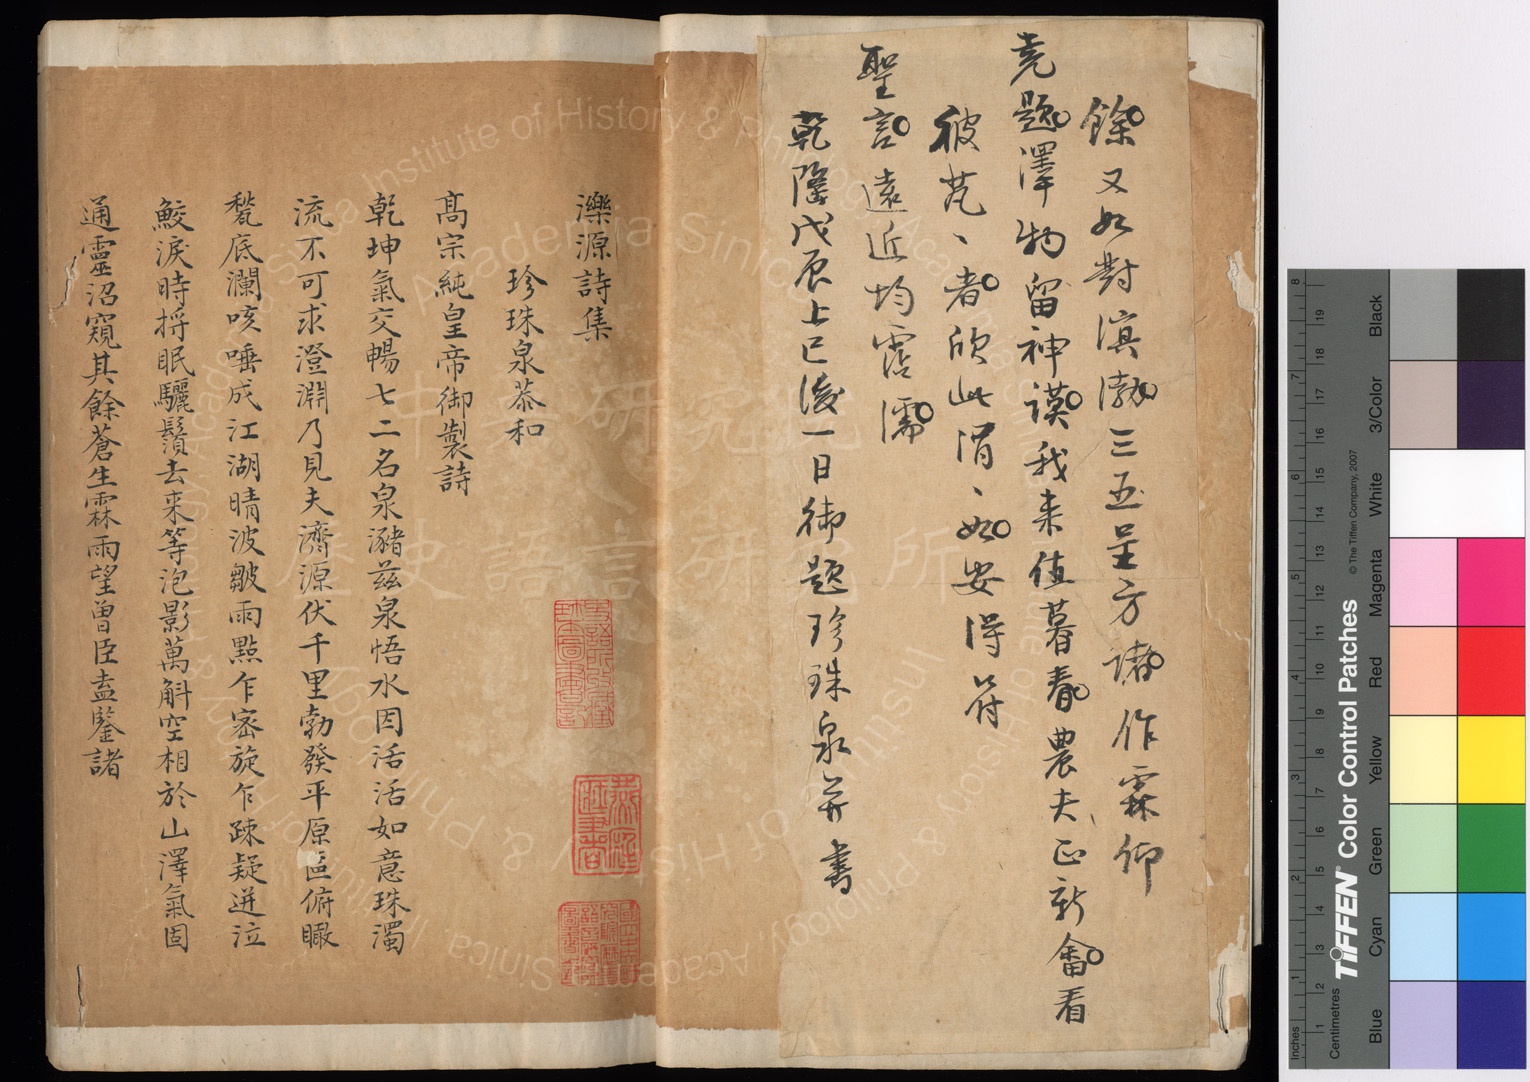 餘又如對滇渤三五呈方諸作霖仰
堯題澤物留神謨我来值暮春農夫正新畬看
彼芃、者欣此涓、如安得符
聖言遠近均霑濡
乾隆戊辰上巳後一日御題珍珠泉并書
濼源詩集
珍珠泉恭和
高宗純皇帝御製詩
乾坤氣交暢七二名泉瀦兹泉悟水因活活如意珠濁
流不可求澄淵乃見夫濟源伏千里勃發平原區俯瞰
甃底瀾咳唾成江湖晴波皺雨點乍密旋乍疎疑迸泣
鮫淚時捋眠驪鬚去来等泡影萬斛空相於山澤氣固
通靈沼窺其餘蒼生霖雨望曾臣盍鑒諸
Academia Sinica
Institute of History & Philology
中央研究院
歷史語言研究所
Inches
Centimetres
TIFFEN® Color Control Patches
© The Tiffen Company, 2007
Blue
Cyan
Green
Yellow
Red
Magenta
White
3/Color
Black